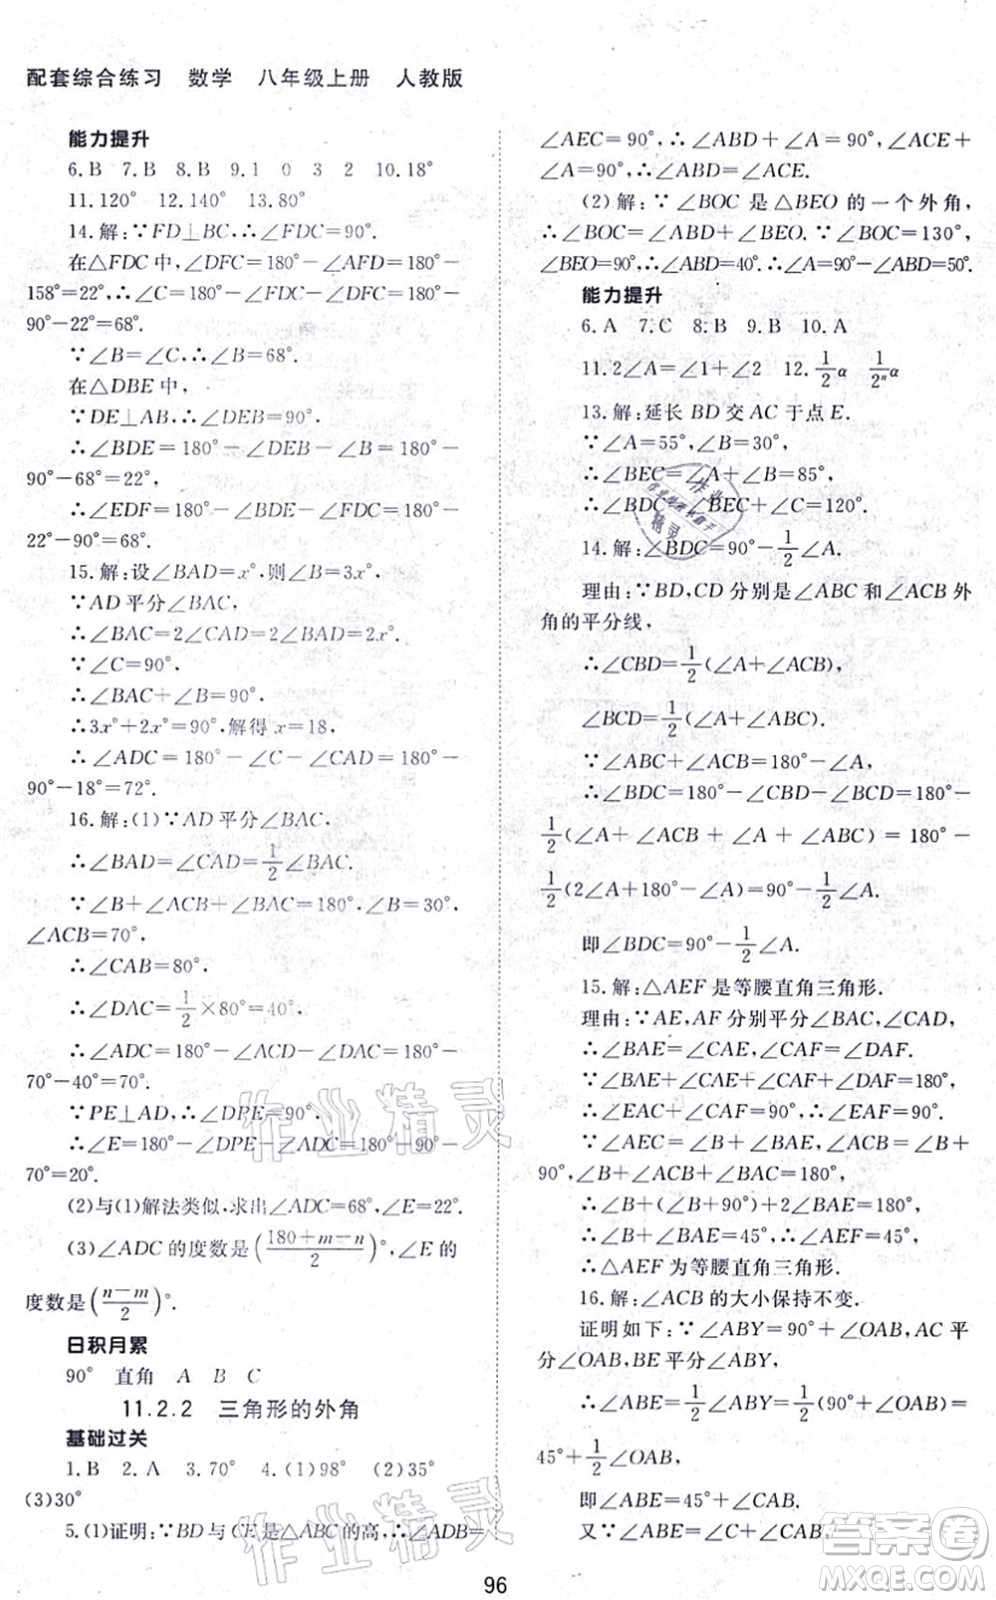 配套综合练习 数学 八年级上册 人教版
能力提升
6.B 7.B 8.B 9.1 0 3 2 10.18°
11.120° 12.140° 13.80°
14.解:∵FD⊥BC,∴∠FDC=90°.
在△FDC中,∠DFC=180°-∠AFD=180°-
158°=22°,∴∠C=180°-∠FDC-∠DFC=180°-
90°-22°=68°.
∵∠B=∠C,∴∠B=68°.
在△DBE中,
∵DE⊥AB,∴∠DEB=90°.
∴∠BDE=180°-∠DEB-∠B=180°-
90°-68°=22°,
∴∠EDF=180°-∠BDE-∠FDC=180°-
22°-90°=68°.
15.解:设∠BAD=x°,则∠B=3x°,
∵AD平分∠BAC,
∴∠BAC=2∠CAD=2∠BAD=2x°.
∵∠C=90°,
∴∠BAC+∠B=90°,
∴3x°+2x°=90°,解得x=18,
∴∠ADC=180°-∠C-∠CAD=180°-
90°-18°=72°.
16.解:(1)∵AD平分∠BAC,
∴∠BAD=∠CAD=1/2∠BAC.
∵∠B+∠ACB+∠BAC=180°,∠B=30°,
∠ACB=70°,
∴∠CAB=80°,
∴∠DAC=1/2×80°=40°,
∴∠ADC=180°-∠ACB-∠DAC=180°-
70°-40°=70°.
∵PE⊥AD,∴∠DPE=90°,
∴∠E=180°-∠DPE-∠ADC=180°-90°-
70°=20°.
(2)与(1)解法类似,求出∠ADC=68°,∠E=22°.
(3)∠ADC的度数是((180+m-n)/2)°,∠E的
度数是((n-m)/2)°.
日积月累
90° 直角 A B C
11.2.2 三角形的外角
基础过关
1.B 2.A 3.70° 4.(1)98° (2)35°
(3)30°
5.(1)证明:∵BD与CE是△ABC的高,∴∠ADB=
∠AEC=90°,∴∠ABD+∠A=90°,∠ACE+
∠A=90°,∴∠ABD=∠ACE.
(2)解:∵∠BOC是△BEO的一个外角,
∴∠BOC=∠ABD+∠BEO.∵∠BOC=130°,
∠BEO=90°,∴∠ABD=40°.∴∠A=90°-∠ABD=50°.
能力提升
6.A 7.C 8.B 9.B 10.A
11.2∠A=∠1+∠2 12.1/2α 1/2ⁿα
13.解:延长BD交AC于点E.
∵∠A=55°,∠B=30°,
∴∠BEC=∠A+∠B=85°,
∴∠BDC=∠BEC+∠C=120°.
14.解:∠BDC=90°-1/2∠A.
理由:∵BD,CD分别是∠ABC和∠ACB外
角的平分线,
∴∠CBD=1/2(∠A+∠ACB),
∠BCD=1/2(∠A+∠ABC).
∵∠ABC+∠ACB=180°-∠A,
∴∠BDC=180°-∠CBD-∠BCD=180°-
1/2(∠A+∠ACB+∠A+∠ABC)=180°-
1/2(2∠A+180°-∠A)=90°-1/2∠A.
即∠BDC=90°-1/2∠A.
15.解:△AEF是等腰直角三角形.
理由:∵AE,AF分别平分∠BAC,∠CAD,
∴∠BAE=∠EAC,∠CAF=∠DAF.
∵∠BAE+∠EAC+∠CAF+∠DAF=180°,
∴∠EAC+∠CAF=∠EAF=90°.
∵∠AEC=∠B+∠BAE,∠ACB=∠BAE+
90°,∠B+∠ACB+∠BAC=180°,
∴∠B+∠BAE+90°+2∠BAE=180°,
∴∠B+∠BAE=45°,∴∠AEC=45°,
∴△AEF为等腰直角三角形.
16.解:∠ACB的大小保持不变.
证明如下:∵∠ABY=90°+∠OAB,AC平
分∠OAB,BE平分∠ABY,
∴∠ABE=1/2∠ABY=1/2(90°+∠OAB)=
45°+1/2∠OAB,
即∠ABE=45°+∠CAB.
又∵∠ABE=∠C+∠CAB,
96
作业精灵
作业精灵
答案卷
MXQE.COM